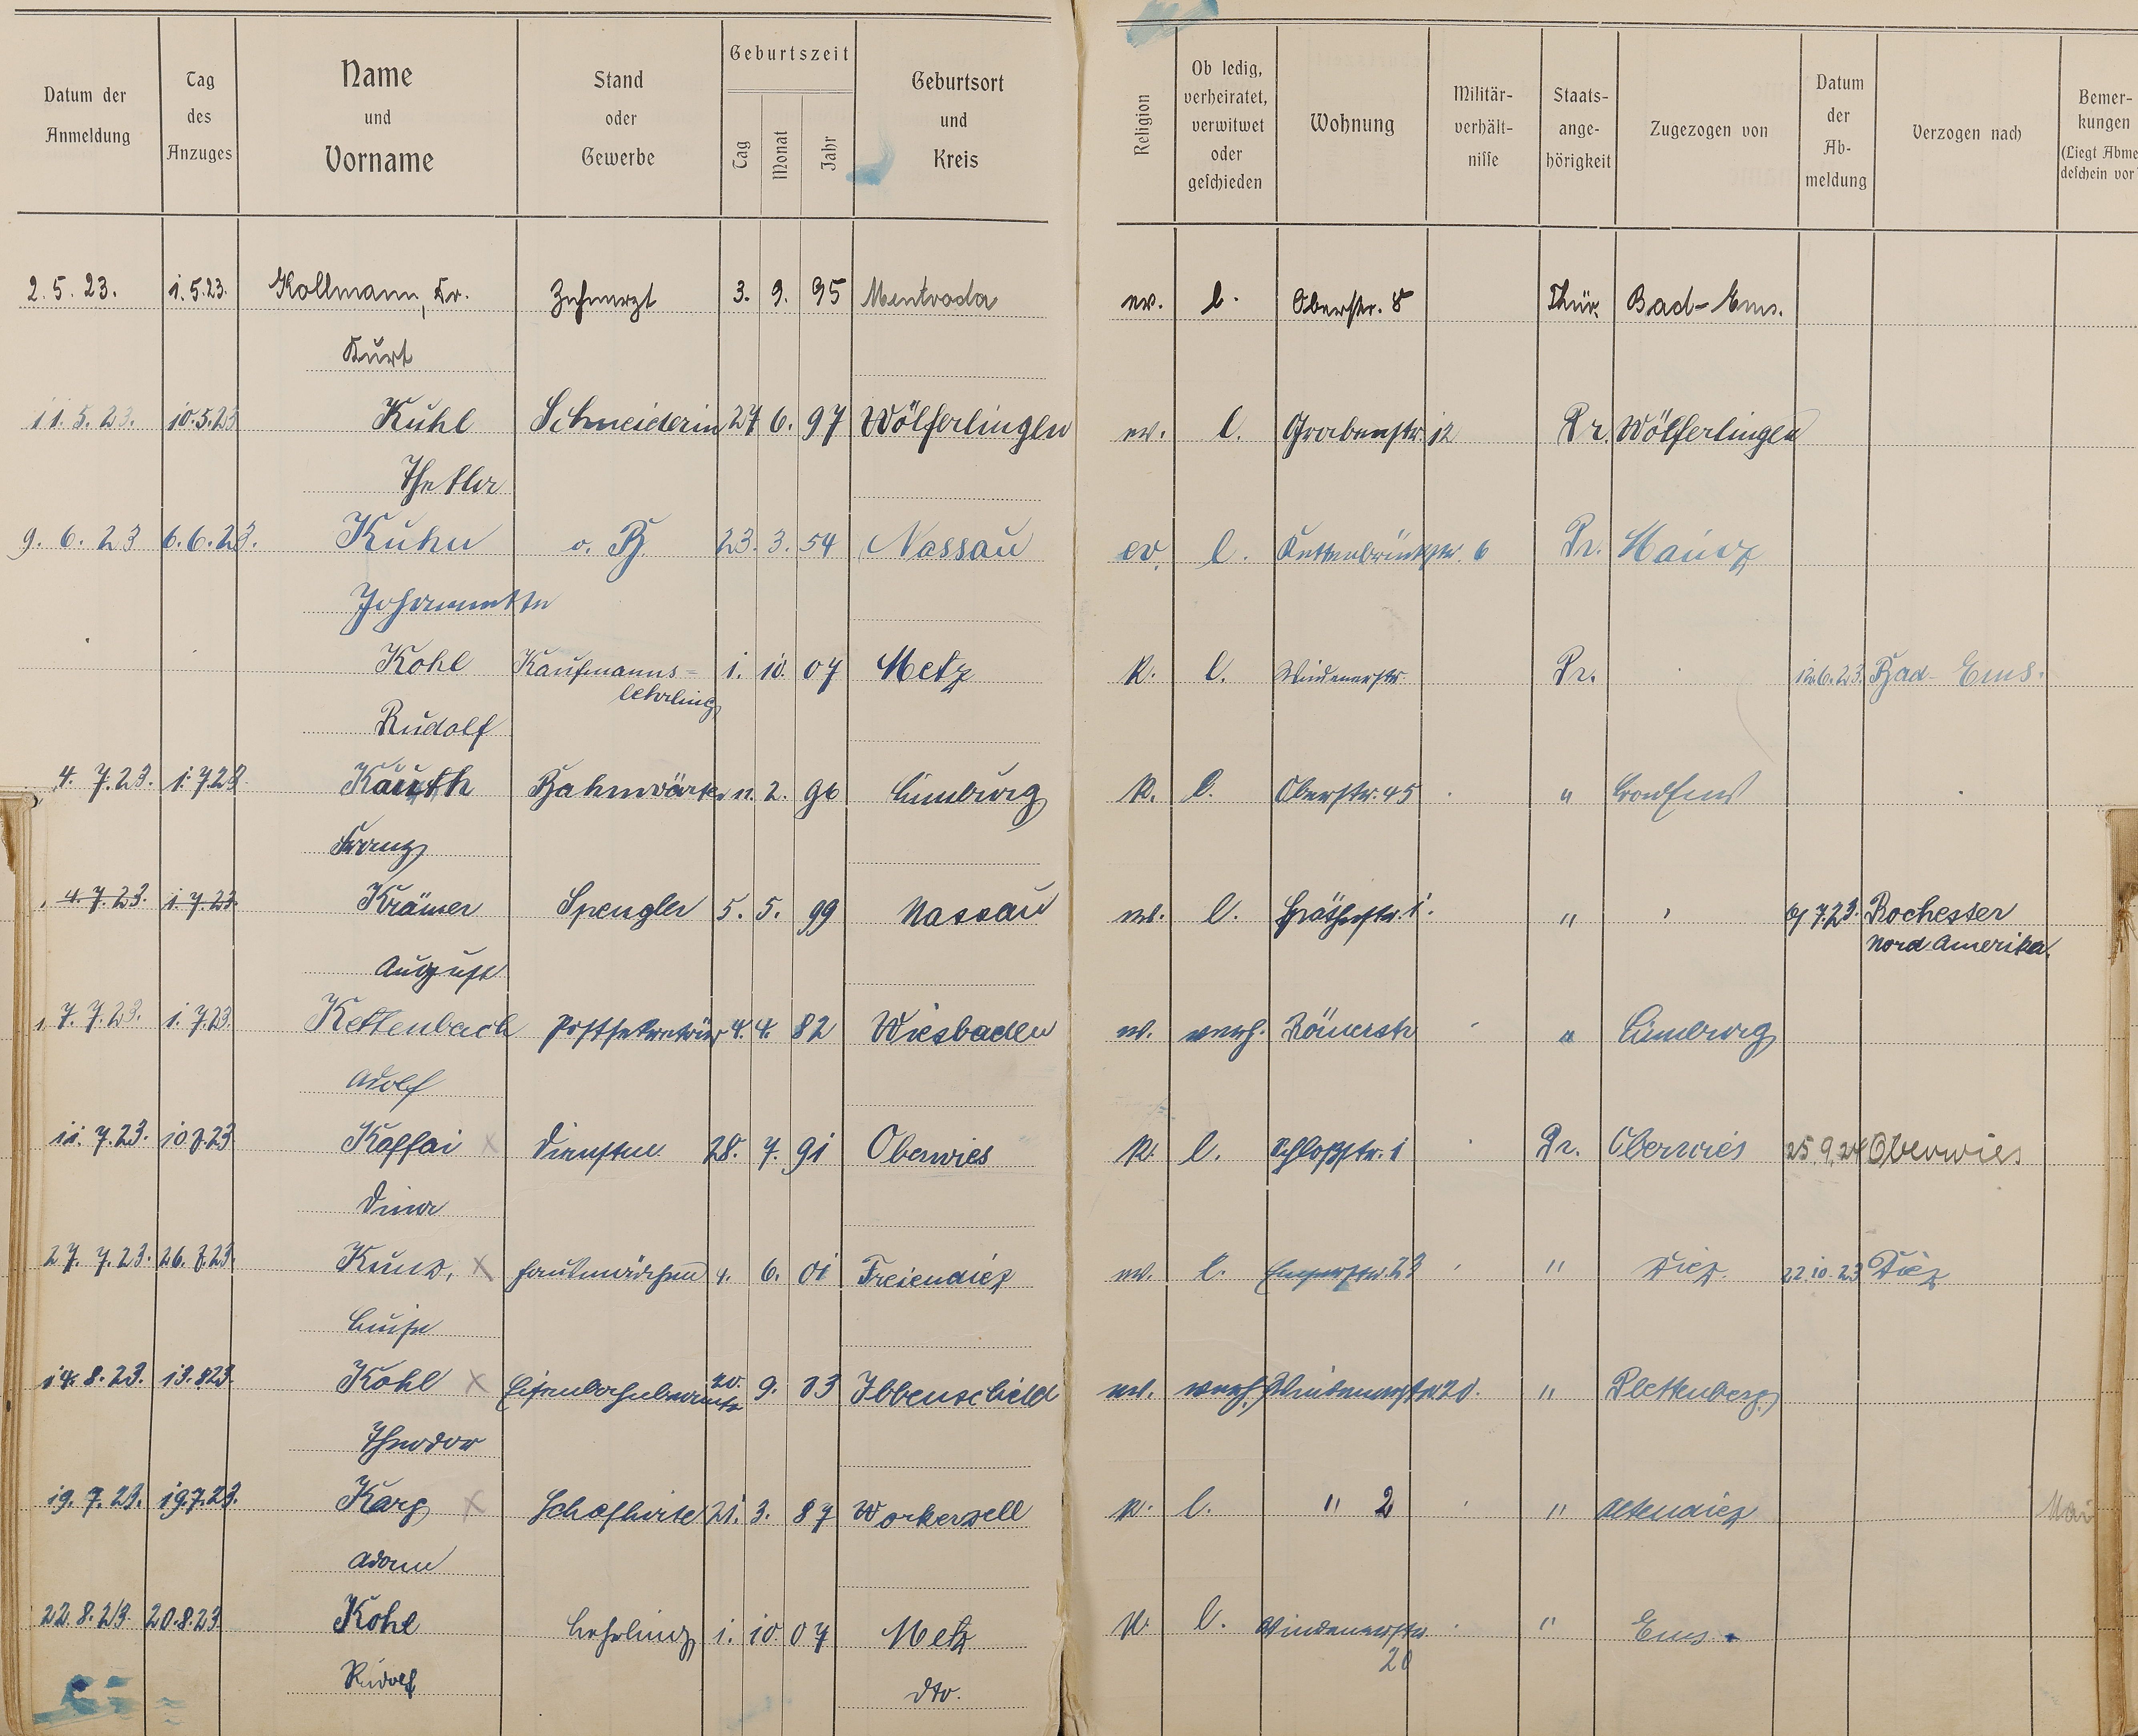 Datum der Anmeldung
Tag des Anzuges
Name und Vorname
Stand oder Gewerbe
Geburtszeit
Tag
Monat
Jahr
Geburtsort und Kreis
Religion
Ob ledig, verheiratet, verwitwet oder geschieden
Wohnung
Militär-verhält-nisse
Staats-ange-hörigkeit
Zugezogen von
Datum der Ab-meldung
Verzogen nach
Bemer-kungen
(Liegt Abme
deschein vor
2.5.23. 1.5.23. Kollmann, Dr. Zahnarzt 3. 9. 95 Mentroda ev. l. Oberstr. 8 Thür. Bad-Ems.
Kurt
11.5.23. 10.5.23 Kuhl Schneiderin 27 6. 97 Wölferlingen ev. l. Grabenstr. 12 Pr. Wölferlingen
Thekla
9.6.23 6.6.23. Kuhn o. B. 23. 3. 54 Nassau ev. l. Kettenbrückstr. 6 Pr. Mainz
Johannette
Kohl Kaufmanns= 1. 10. 07 Metz k. l. Windenerstr. Pr. 12.6.23. Bad-Ems.
lehrling
Rudolf
4.7.23. 1.7.23. Kauth Bahnwärter 11. 2. 96 Limburg k. l. Oberstr. 45 "
Franz
4.7.23. 1.7.23. Krämer Spengler 5. 5. 99 Nassau ev. l. 1. " 6.7.23. Rochester
Nord Amerika.
August
7.7.23. 1.7.23. Kettenbach Postsekretär 4. 4. 82 Wiesbaden ev. verh. Römerstr " Limburg
Adolf
11.7.23. 10.7.23 Kaffai x Dienstm. 28. 7. 91 Oberwies k. l. Schloßstr. 1 Pr. Oberwies 25.9.24 Oberwies
Dina
27.7.23. 26.7.23. Kunz, x Hausmädchen 4. 6. 01 Freiendiez ev. l. Emserstr. 23 " Diez. 22.10.23 Diez
Luise
14.8.23. 13.8.23. Kohl x Eisenbahnbeamte 20. 9. 83 Ibbenscheid ev. verh. Windenerstr. 20. " Plettenberg
Theodor
19.7.23. 19.7.23. Karg x Schafhirte 21. 3. 87 Workerszell k. l. " 2 " Altendiez
Adam
22.8.23. 20.8.23. Kohl Lehrling 1. 10. 07 Metz k. l. Windenerstr " Ems.
20
Rudolf dto.